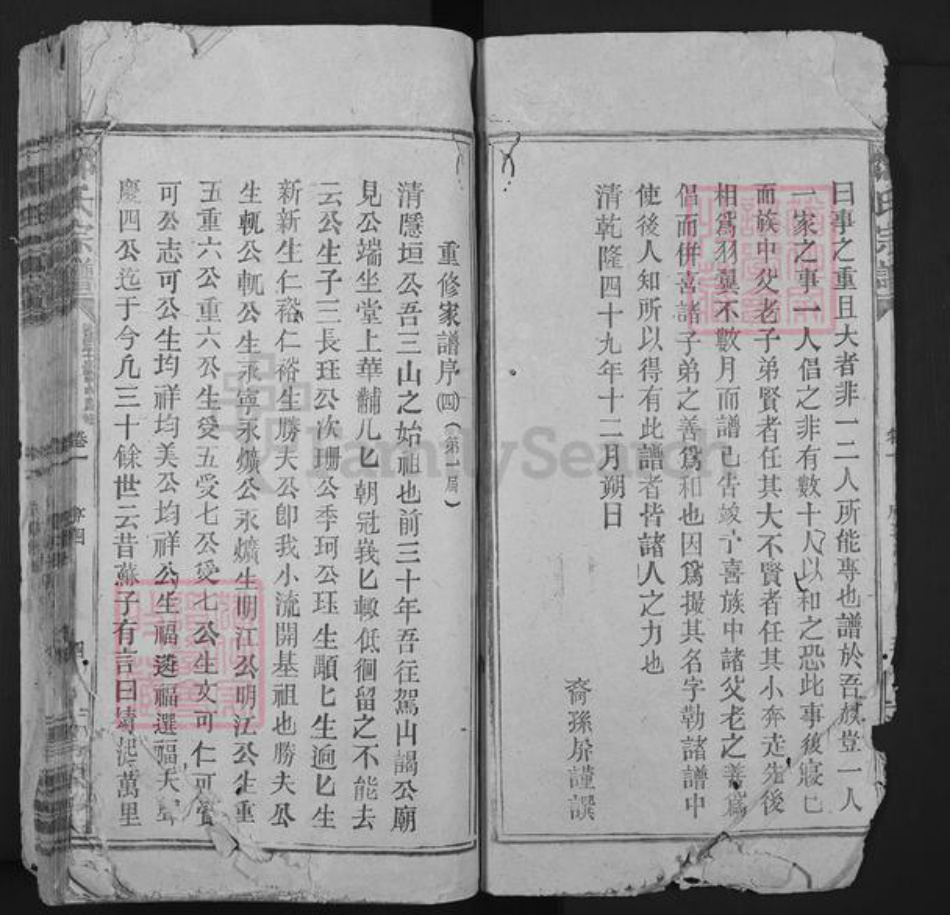 曰事之重且大者非一二人所能專也譜於吾族豈一人
一家之事一人倡之非有數十人以和之恐此事後寢已
而族中父老子弟賢者任其大不賢者任其小奔走先後
相爲羽翼不數月而譜已告竣予喜族中諸父老之善爲
倡而併喜諸子弟之善爲和也因爲撮其名字勒諸譜中
使後人知所以得有此譜者皆諸人之力也
清乾隆四十九年十二月朔日
裔孫 謹譔
重修家譜序(四)(第一屆)
清隱垣公吾三山之始祖也前三十年吾往駕山謁公廟
見公端坐堂上華黼几匕朝冠峩匕輙低徊留之不能去
云公生子三長玨公次珊公季珂公玨生顒匕生逈匕生
新新生仁裕仁裕生勝夫公卽我小流開基祖也勝夫公
生軏公軏公生永寧永爌公永爌生明江公明江公生重
五重六公重六公生受五受七公受七公生文可仁可
可公志可公生均祥均美公均祥公生福遴福選福
慶四公迄于今凡三十餘世云昔蘇子有言曰 萬里
氏宗譜
卷一
序四
四
FamilySearch